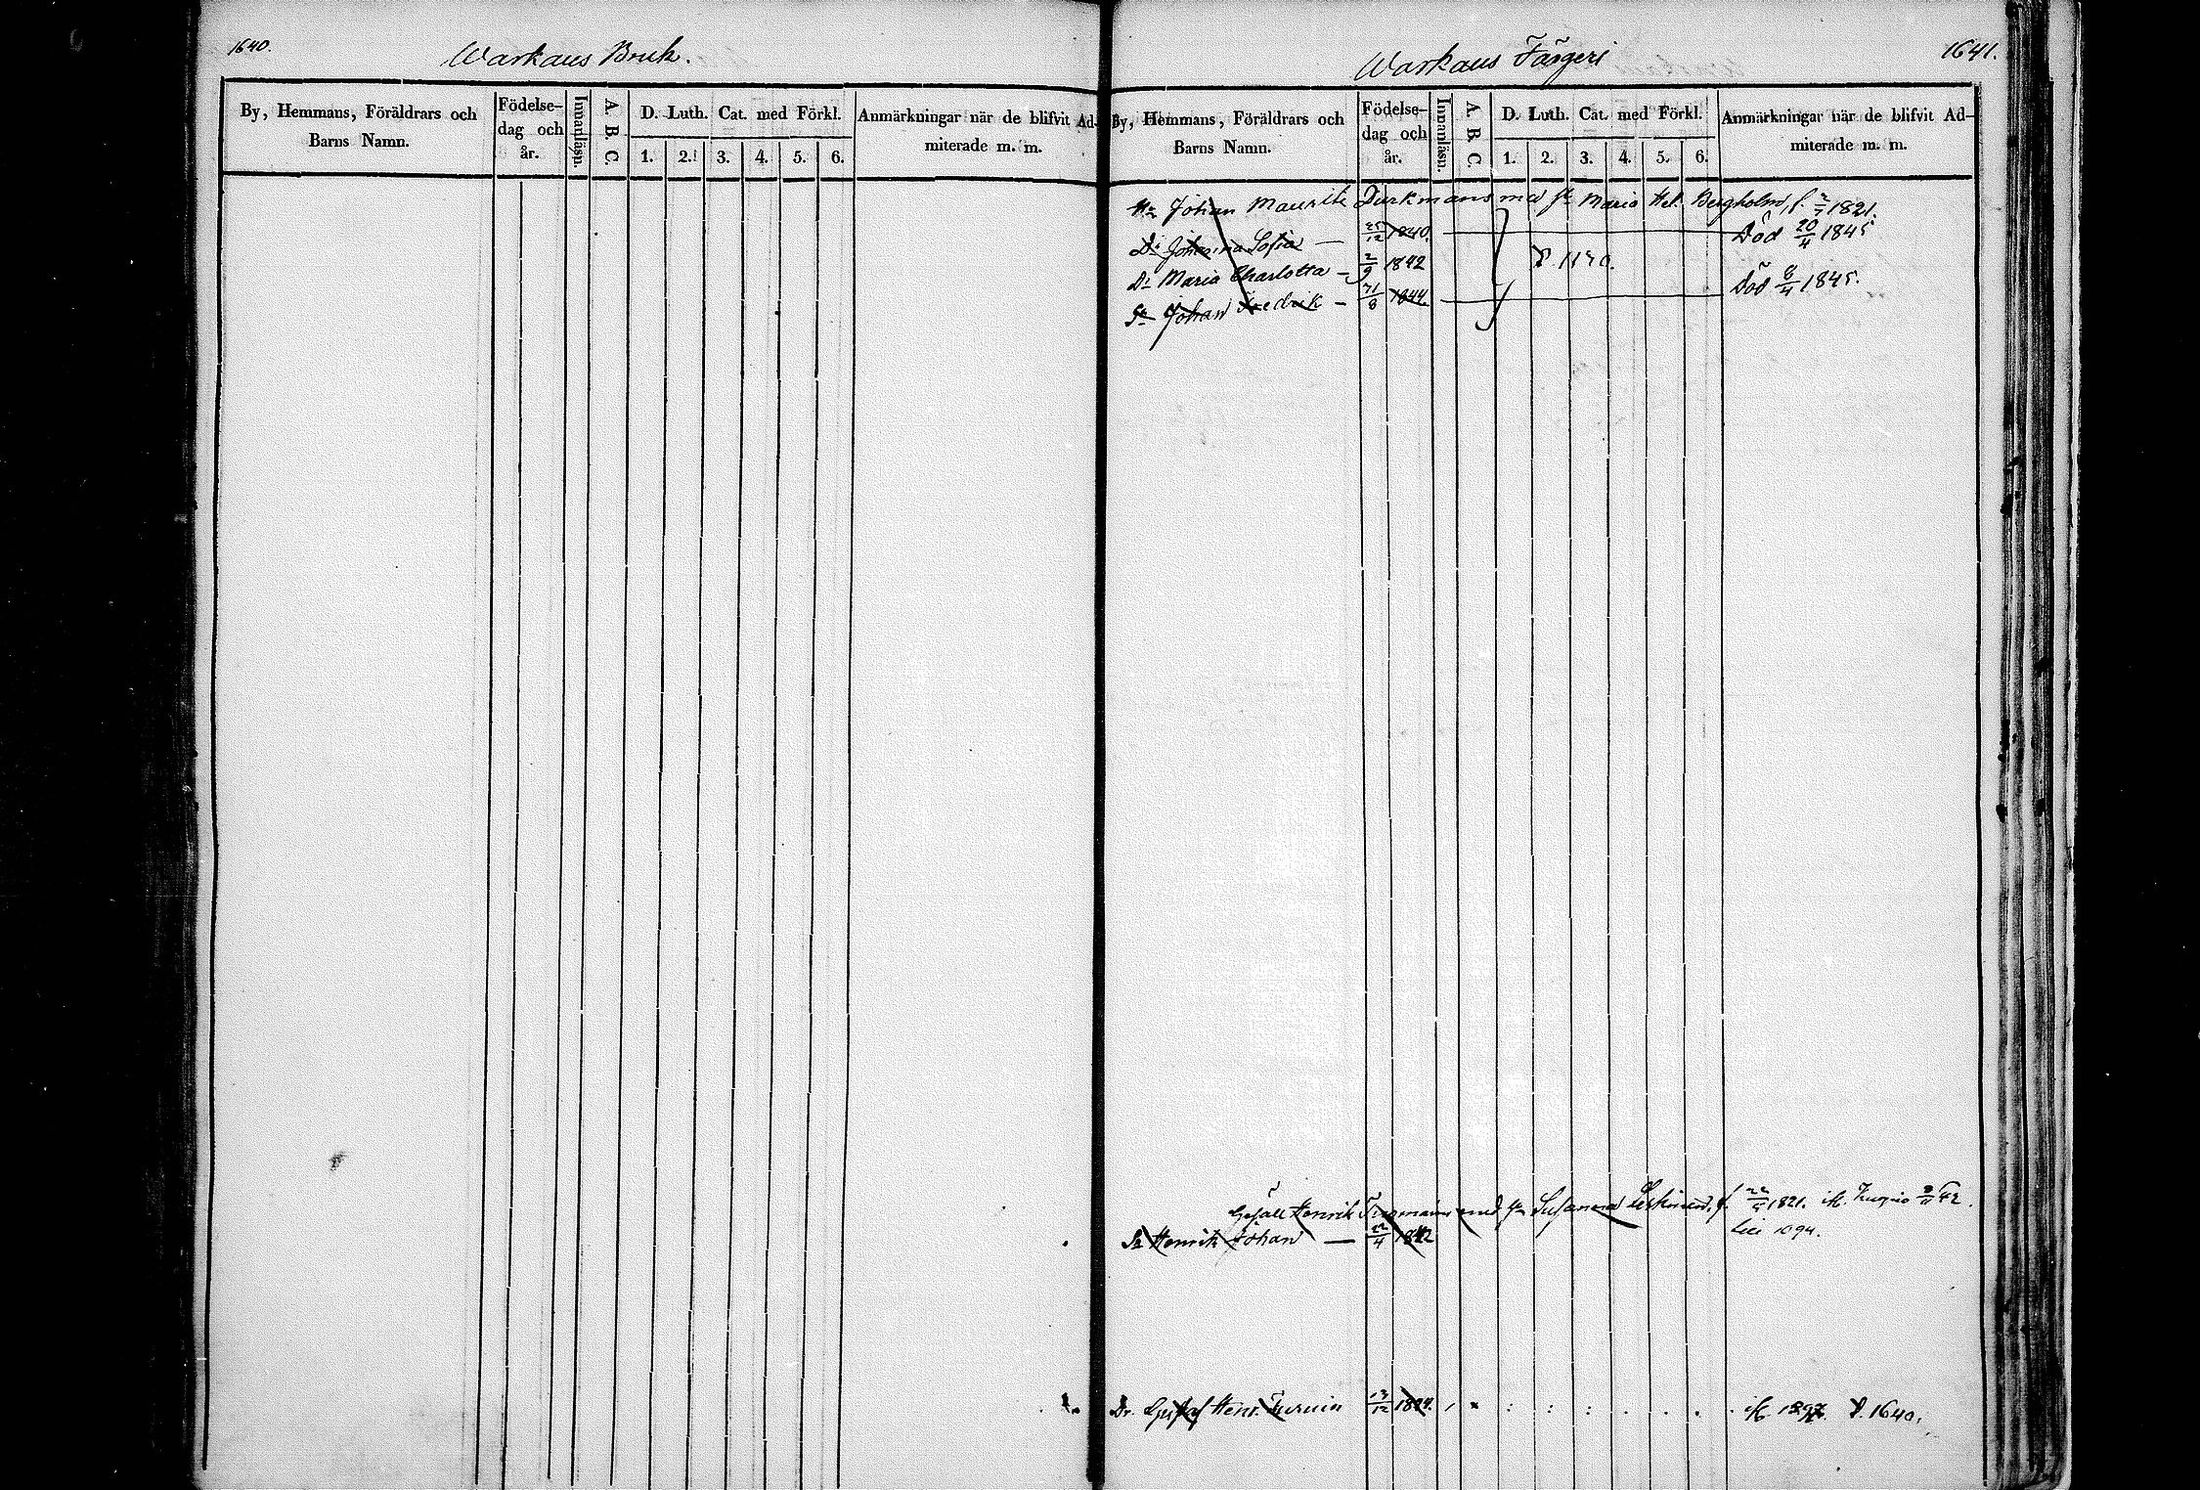 1640.
Warkaus Bruk.
By, Hemmans, Föräldrars och
Barns Namn.
Födelse-
dag och
år.
Innanläsn.
A. B. C.
D. Luth. Cat. med Förkl.
1. 2. 3. 4. 5. 6.
Anmärkningar när de blifvit Ad-
miterade m. m.
Warkaus Färgeri
1641.
By, Hemmans, Föräldrars och
Barns Namn.
Födelse-
dag och
år.
Innanläsn.
A. B. C.
D. Luth. Cat. med Förkl.
1. 2. 3. 4. 5. 6.
Anmärkningar när de blifvit Ad-
miterade m. m.
Johan Maurits med Maria Hel. Bergholm, f. 1821.
Dr Johanna Sofia — 25/12 1840. Död 20/4 1845
Dr Maria Charlotta — 2/9 1842
Sn Johan Fredrik — 1844. Död 8/4 1845.
Gesäll Henrik med Susanna 1821. Kuopio 42.
Sn Henrik Johan — 22/4 1842
1094.
Dr. Gustaf Henr. 13/12 p. 1640.